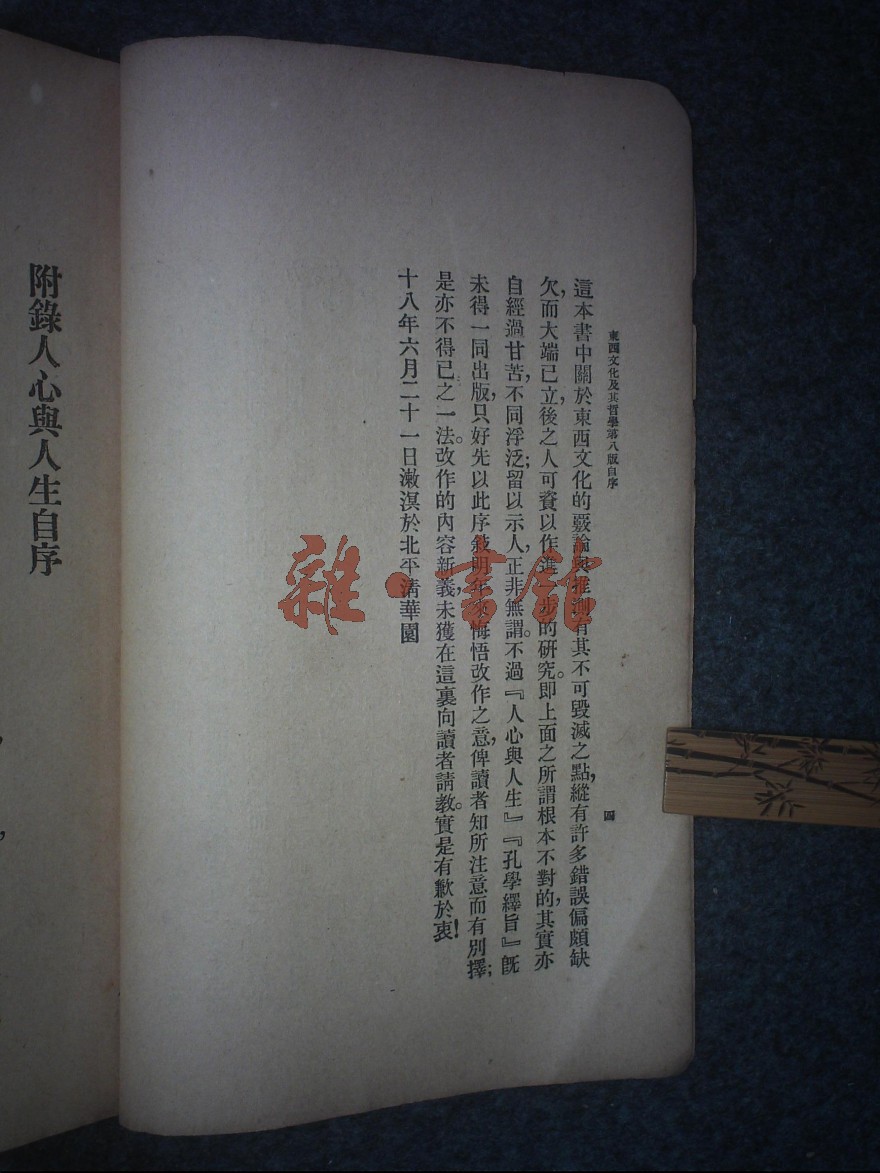 東西文化及其哲學第八版自序
四
這本書中關於東西文化的覈論與推測有其不可毀滅之點，縱有許多錯誤偏頗缺
欠，而大端已立，後之人可資以作進一步的研究。即上面之所謂根本不對的，其實亦
自經過甘苦，不同浮泛；留以示人，正非無謂。不過『人心與人生』『孔學繹旨』既
未得一同出版，只好先以此序敍明年來悔悟改作之意，俾讀者知所注意而有別擇；
是亦不得已之一法。改作的內容新義，未獲在這裏向讀者請教。實是有歉於衷！
十八年六月二十一日漱溟於北平清華園
附錄人心與人生自序
雜·書館